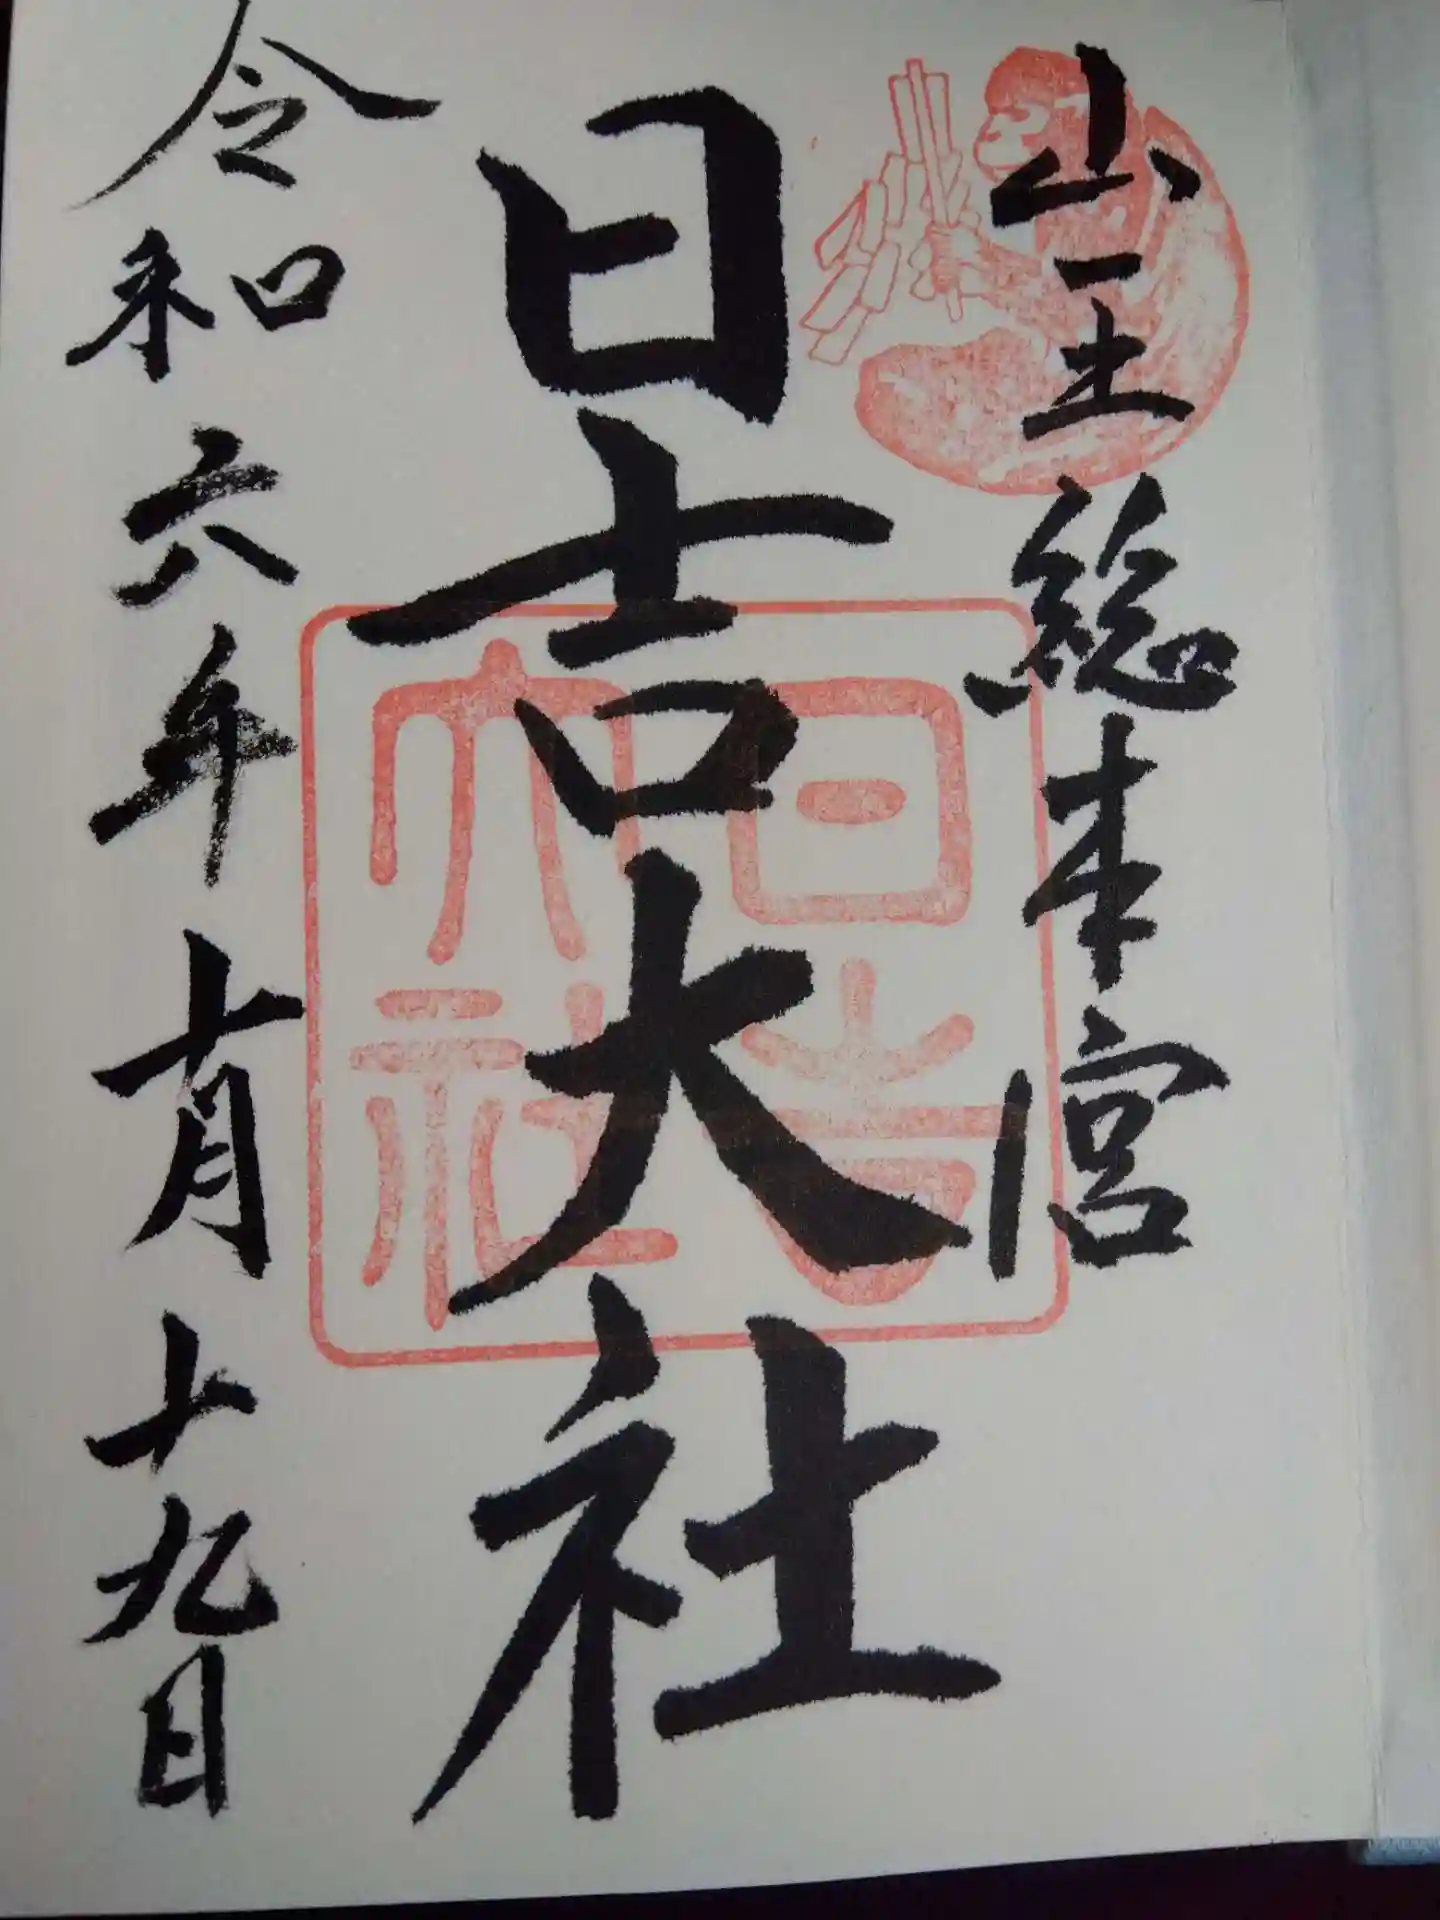 山王総本宮
日吉大社
日吉大社
令和六年十月十九日